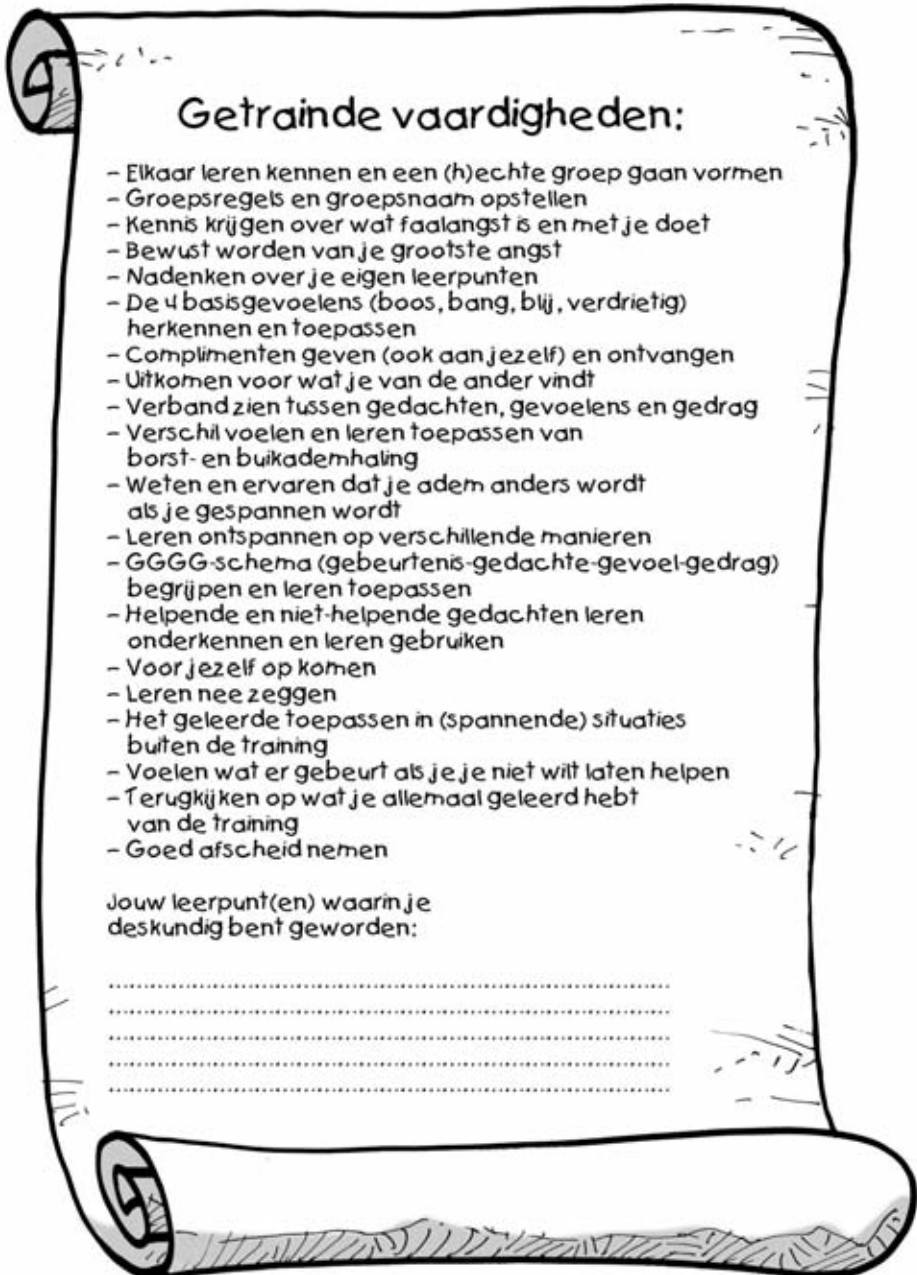 Getrainde vaardigheden:
- Elkaar leren kennen en een (h)echte groep gaan vormen
- Groepsregels en groepsnaam opstellen
- Kennis krijgen over wat faalangst is en met je doet
- Bewust worden van je grootste angst
- Nadenken over je eigen leerpunten
- De 4 basisgevoelens (boos, bang, blij, verdrietig)
herkennen en toepassen
- Complimenten geven (ook aan jezelf) en ontvangen
- Uitkomen voor wat je van de ander vindt
- Verband zien tussen gedachten, gevoelens en gedrag
- Verschil voelen en leren toepassen van
borst- en buikademhaling
- Weten en ervaren dat je adem anders wordt
als je gespannen wordt
- Leren ontspannen op verschillende manieren
- GGGG-schema (gebeurtenis-gedachte-gevoel-gedrag)
begrijpen en leren toepassen
- Helpende en niet-helpende gedachten leren
onderkennen en leren gebruiken
- Voor jezelf op komen
- Leren nee zeggen
- Het geleerde toepassen in (spannende) situaties
buiten de training
- Voelen wat er gebeurt als je je niet wilt laten helpen
- Terugkijken op wat je allemaal geleerd hebt
van de training
- Goed afscheid nemen
Jouw leerpunt(en) waarin je
deskundig bent geworden: